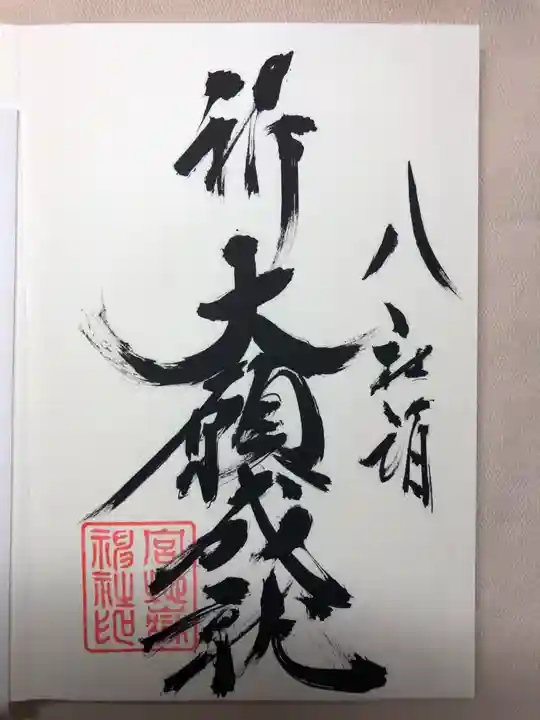 八社詣
祈
大願成就
宮地嶽
神社印